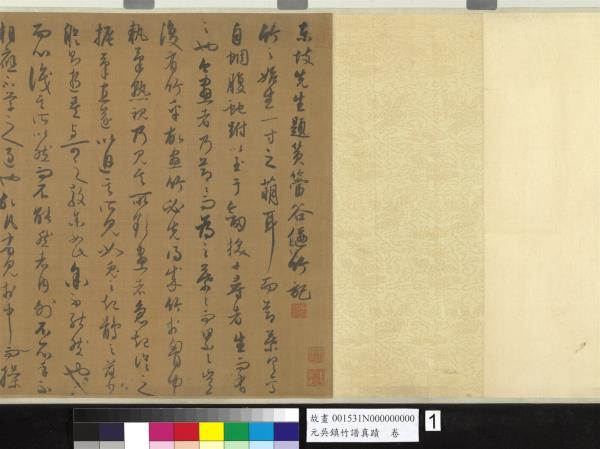 東坡先生題篔簹谷偃竹記
竹之始生一寸之萌耳而節葉具焉
自蜩腹蛇蚹以至于劍拔十尋者生而有
之也今畫者乃節節而為之葉葉而累之豈
復有竹乎故畫竹必先得成竹於胷中
執筆熟視乃見其所欲畫者急起從之
振筆直遂以追其所見如兔起鶻落少
縱則逝矣與可之教余如此余不能然也
而心識其所以然而不能然者內外不一心手不
相應不學之過也故凡有見於中而操
故畫 001531N000000000
元吳鎮竹譜真蹟 卷
1